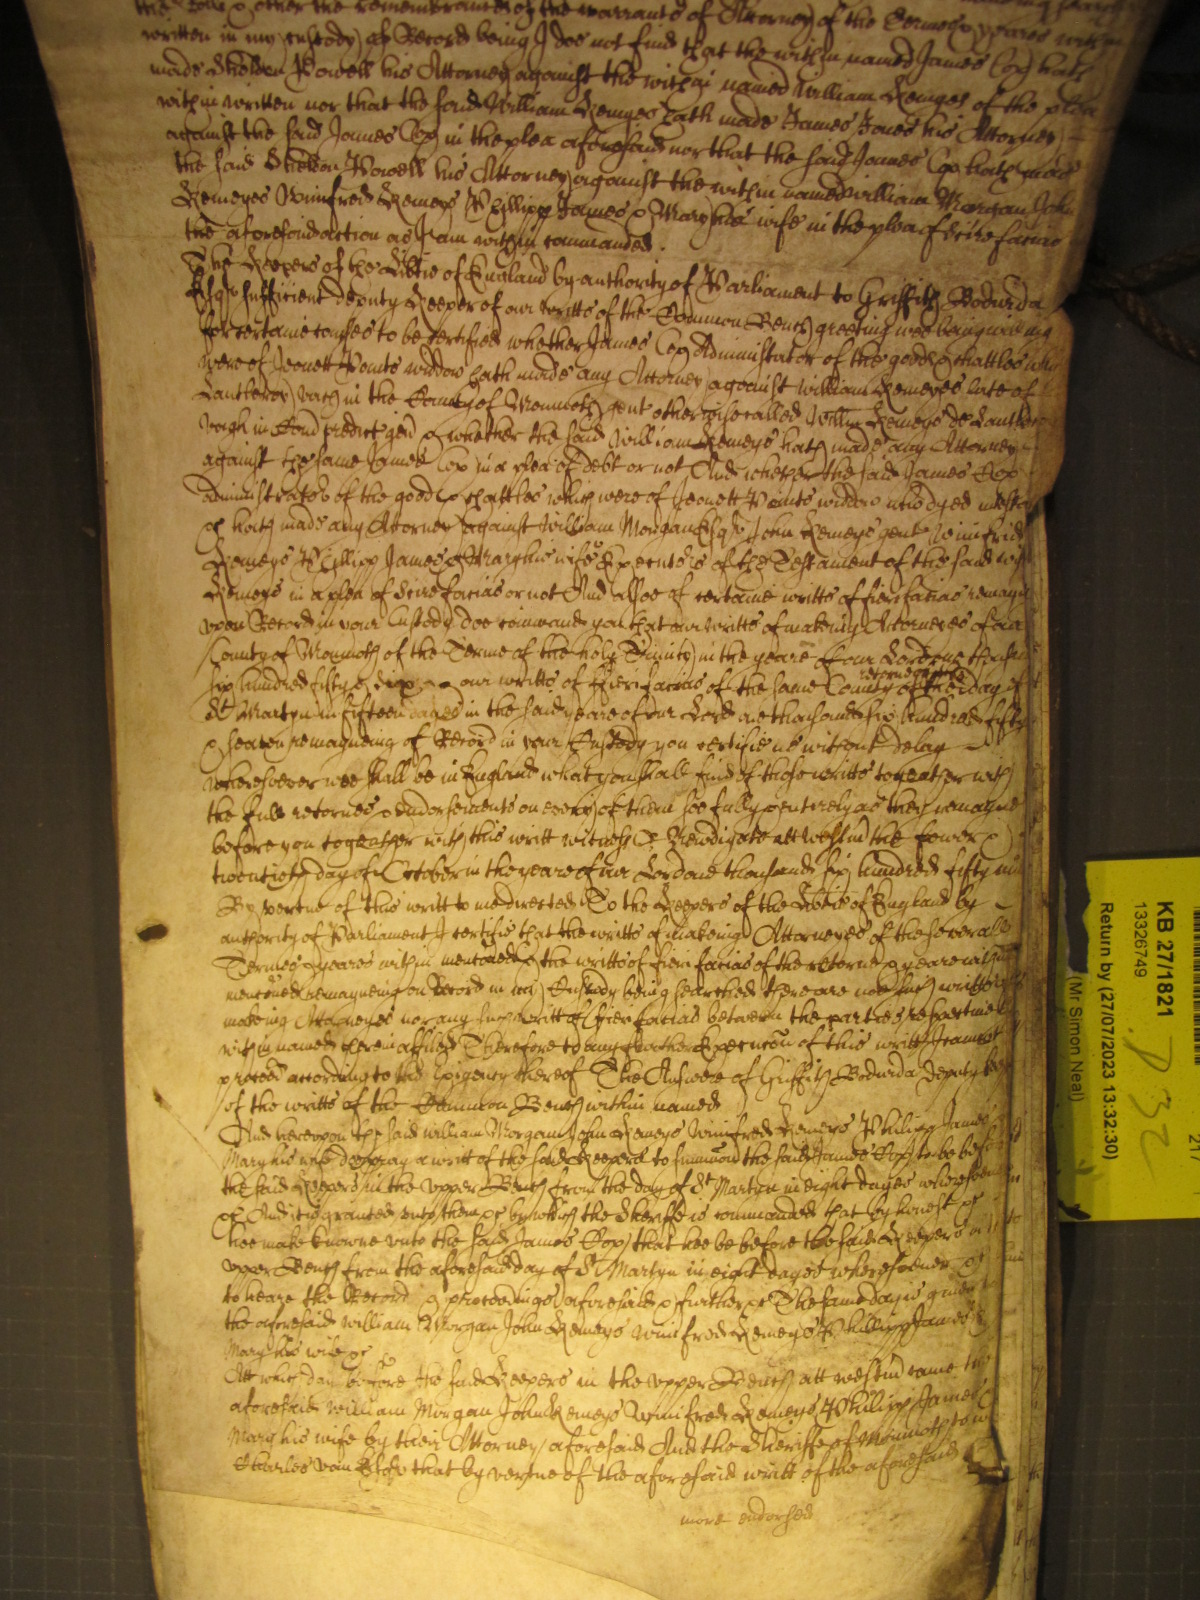 the Rolls & other the remembrances of the warrants of Attorney of the Termes & yeares within
written in my custody of Record being I doe not find that the within named James Cox hath
made Sheldon Powell his Attorney against the within named William Kemeys of the plea
within written nor that the said William Kemeys hath made James Jones his Attorney
against the said James Cox in the plea aforesaid nor that the said James Cox hath made
the said Sheldon Powell his Attorney against the within named William Morgan John
Kemeyes Winifred Kemeys Phillipp James & Mary his wife in the plea of Scire facias
the aforesaid action as I am within commanded.
The Keepers of the Libtie of England by authority of Parliament to Griffith Bodurda
Esqr sufficient deputy Keeper of our writts of the Common Bench greeting wee being willing
for certaine causes to be certified whether James Cox Administrator of the goods & chattles which
were of Jennett Points widdow hath made any Attorney against William Kemeyes late of
vach in the County of Monmoth gent otherwise called Willm Kemeys de
in Com predict gen & whether the said William Kemeys hath made any Attorney
against the same James Cox in a plea of debt or not And whether the said James Cox
administrator of the goods & chattles which were of Jennett Points widdow who dyed intestat
&c hath made any Attorney against William Morgan Esqr John Kemeys gent Winifrid
Kemeys Phillipp James & Mary his wife Executors of the Testament of the said Willm
Kemeys in a plea of Scire facias or not And alsoe of certaine writts of fieri facias remayning
upon Record in your Custody doe command you that our writts of making Attorneyes of our
County of Monmoth of the Terme of the holy Trinity in the yeare of our Lord one thousand
six hundred fifty & our writts of ffieri facias of the same County returneable of the day of
St Martyn in fifteen dayes in the said yeare of our Lord one thousand six hundred fifty
& seaven remayneing of Record in your Custody you certifie us without delay
wheresoever wee shall be in England what you shall find of those writts togeather with
the full retornes & endorsements on every of them soe fully & entirely as they remayne
before you togeather with this writt witnes R Newdigate att Westm the fower &
twentieth day of October in the yeare of our Lord one thousand six hundred fifty nine
By vertue of this writt to me directed To the Keepers of the Libtie of England by
authority of Parliament I certifie that the writts of makeing Attorneyes of the severall
Termes & yeares within mentioned & the writts of fieri facias of the retorne & yeare within
mentioned remayneing on Record in my Custody being searched there are noe such writts of
makeing Attorneyes nor any such writt of ffieri facias between the parties respectively
within named therein affiled Therefore to any further Execucon of this writt I cannot
proceed according to the exigency thereof The Answere of Griffith Bodurda deputy keeper
of the writts of the Common Bench within named
And hereupon the said William Morgan John Kemeys Winifred Kemeys Phillipp James
Mary his wife doe pray a writt of the said Keepers to summon the said James Cox to be before
the said Keepers in the upper Bench from the day of St Martyn in eight dayes wheresoever
&c And it is granted unto them &c by which the Sheriffe is commanded that by honest &c
hee make knowne unto the said James Cox that hee be before the said Keepers in the
upper Bench from the aforesaid day of St Martyn in eight dayes wheresoever &c
to heare the Record & proceedings aforesaid & further &c The same day is given to
the aforesaid William Morgan John Kemeys Winifred Kemeys Phillipp James &
Mary his wife &c
Att which day before the said Keepers in the upper Bench att Westm came the
aforesaid William Morgan John Kemeys Winifred Kemeys Phillipp James &
Mary his wife by their Attorney aforesaid And the Sheriffe of Monmoth to wit
Charles Van Esqr that by vertue of the aforesaid writt of the aforesaid
more endorsed
KB 27/1821
13326749
Return by (27/07/2023 13:32:30)
(Mr Simon Neal)